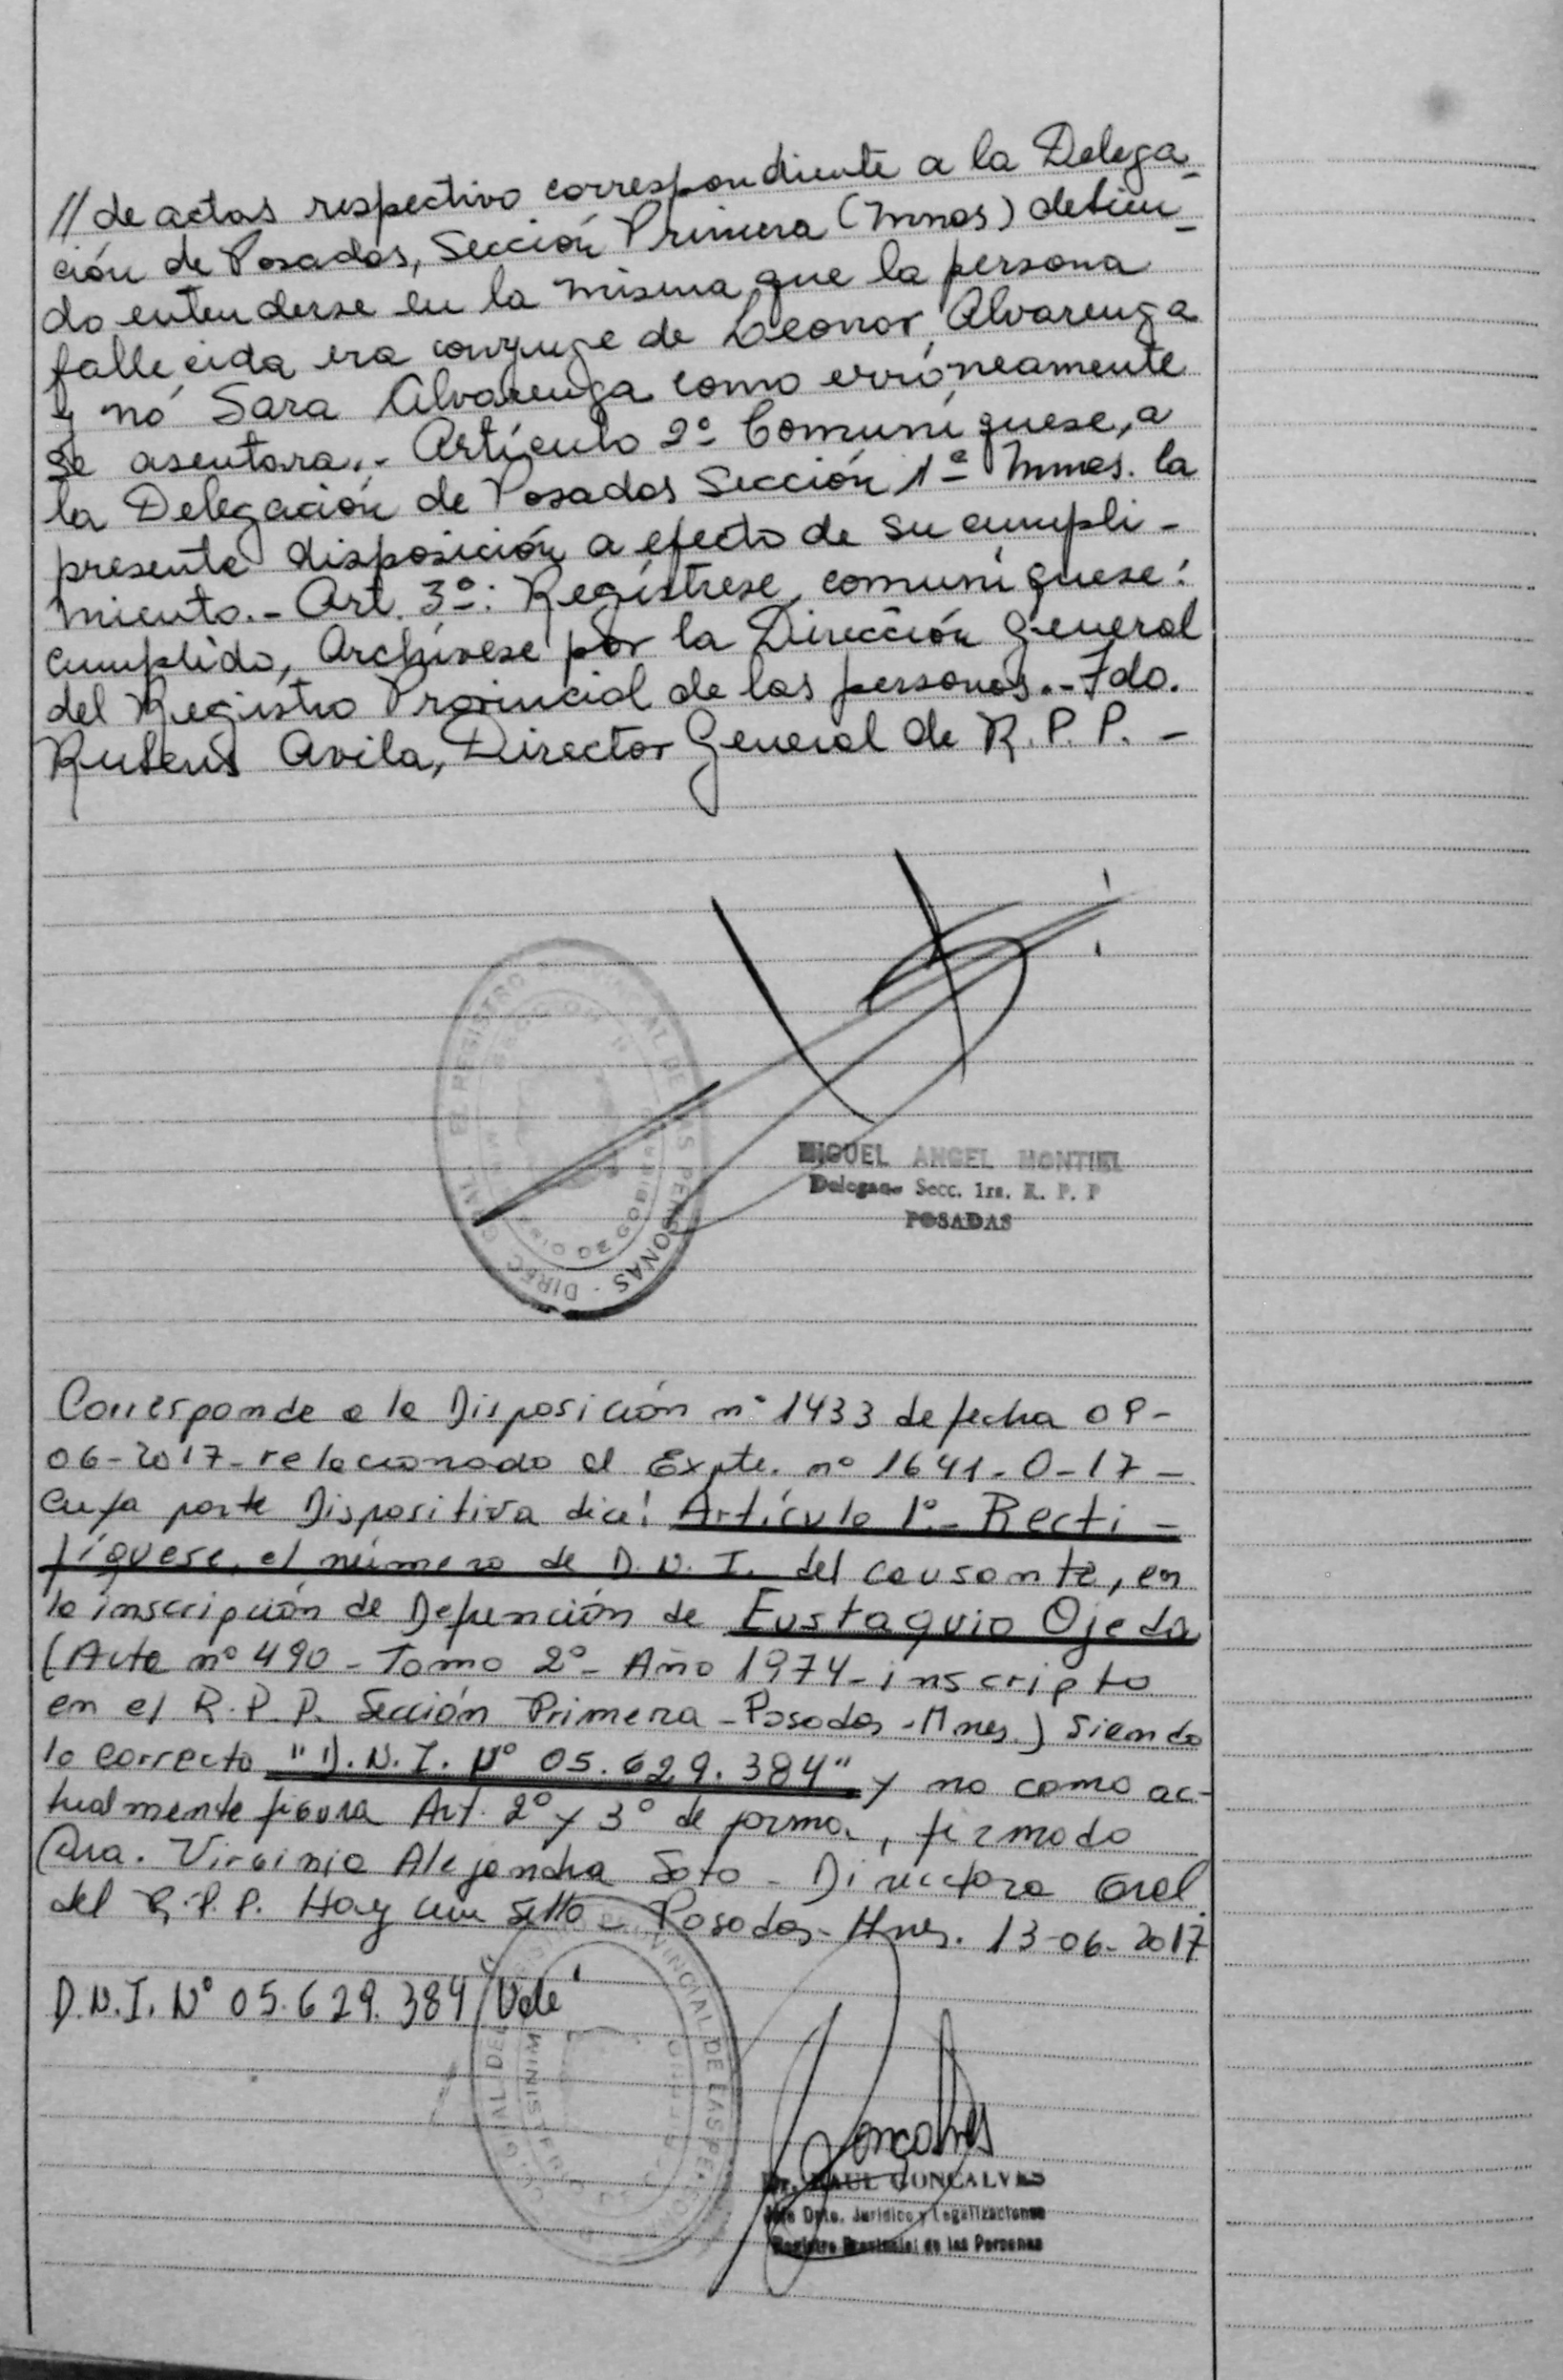 // de actas respectivo correspondiente a la Delega-
ción de Posadas, Sección Primera (Mnes) debien-
do entenderse en la misma que la persona
fallecida era conyuge de Leonor Alvarenga
y nó Sara Alvarenga como erróneamente
se asentara.- Artículo 2º Comuníquese, a
la Delegación de Posadas Sección 1ª Mnes. la
presente disposición a efecto de su cumpli-
miento.- Art. 3º: Regístrese, comuníquese:
cumplido, Archívese por la Dirección General
del Registro Provincial de las personas.- Fdo.
Rubens Avila, Director General de R. P. P. -
MIGUEL ANGEL MONTIEL
Delegado Secc. 1ra. R. P. P
POSADAS
REGISTRO
DE LAS PERSONAS - DIREC
Corresponde a la Disposición nº 1433 de fecha 09-
06-2017- relacionado al Expte. nº 1641-O-17-
cuya parte Dispositiva dice: Artículo 1º- Recti-
fíquese, el número de D.N.I. del causante, en
la inscripción de Defunción de Eustaquio Ojeda
(Acta nº 490 - Tomo 2º- Año 1974- inscripto
en el R.P.P. Sección Primera - Posadas - Mnes.) siendo
lo correcto "D.N.I. Nº 05.629.384" y no como ac-
tualmente figura Art. 2º y 3º de forma, firmado
Dra. Virginia Alejandra Soto - Directora Gral
del R.P.P. Hay un sello - Posadas- Mnes. 13-06-2017
D.N.I. Nº 05.629.384 Vale
PROVINCIAL DE LAS PERSONAS
Goncalves
Dr. RAUL GONCALVES
Jefe Dpto. Jurídico y Legalizaciones
Registro Provincial de las Personas